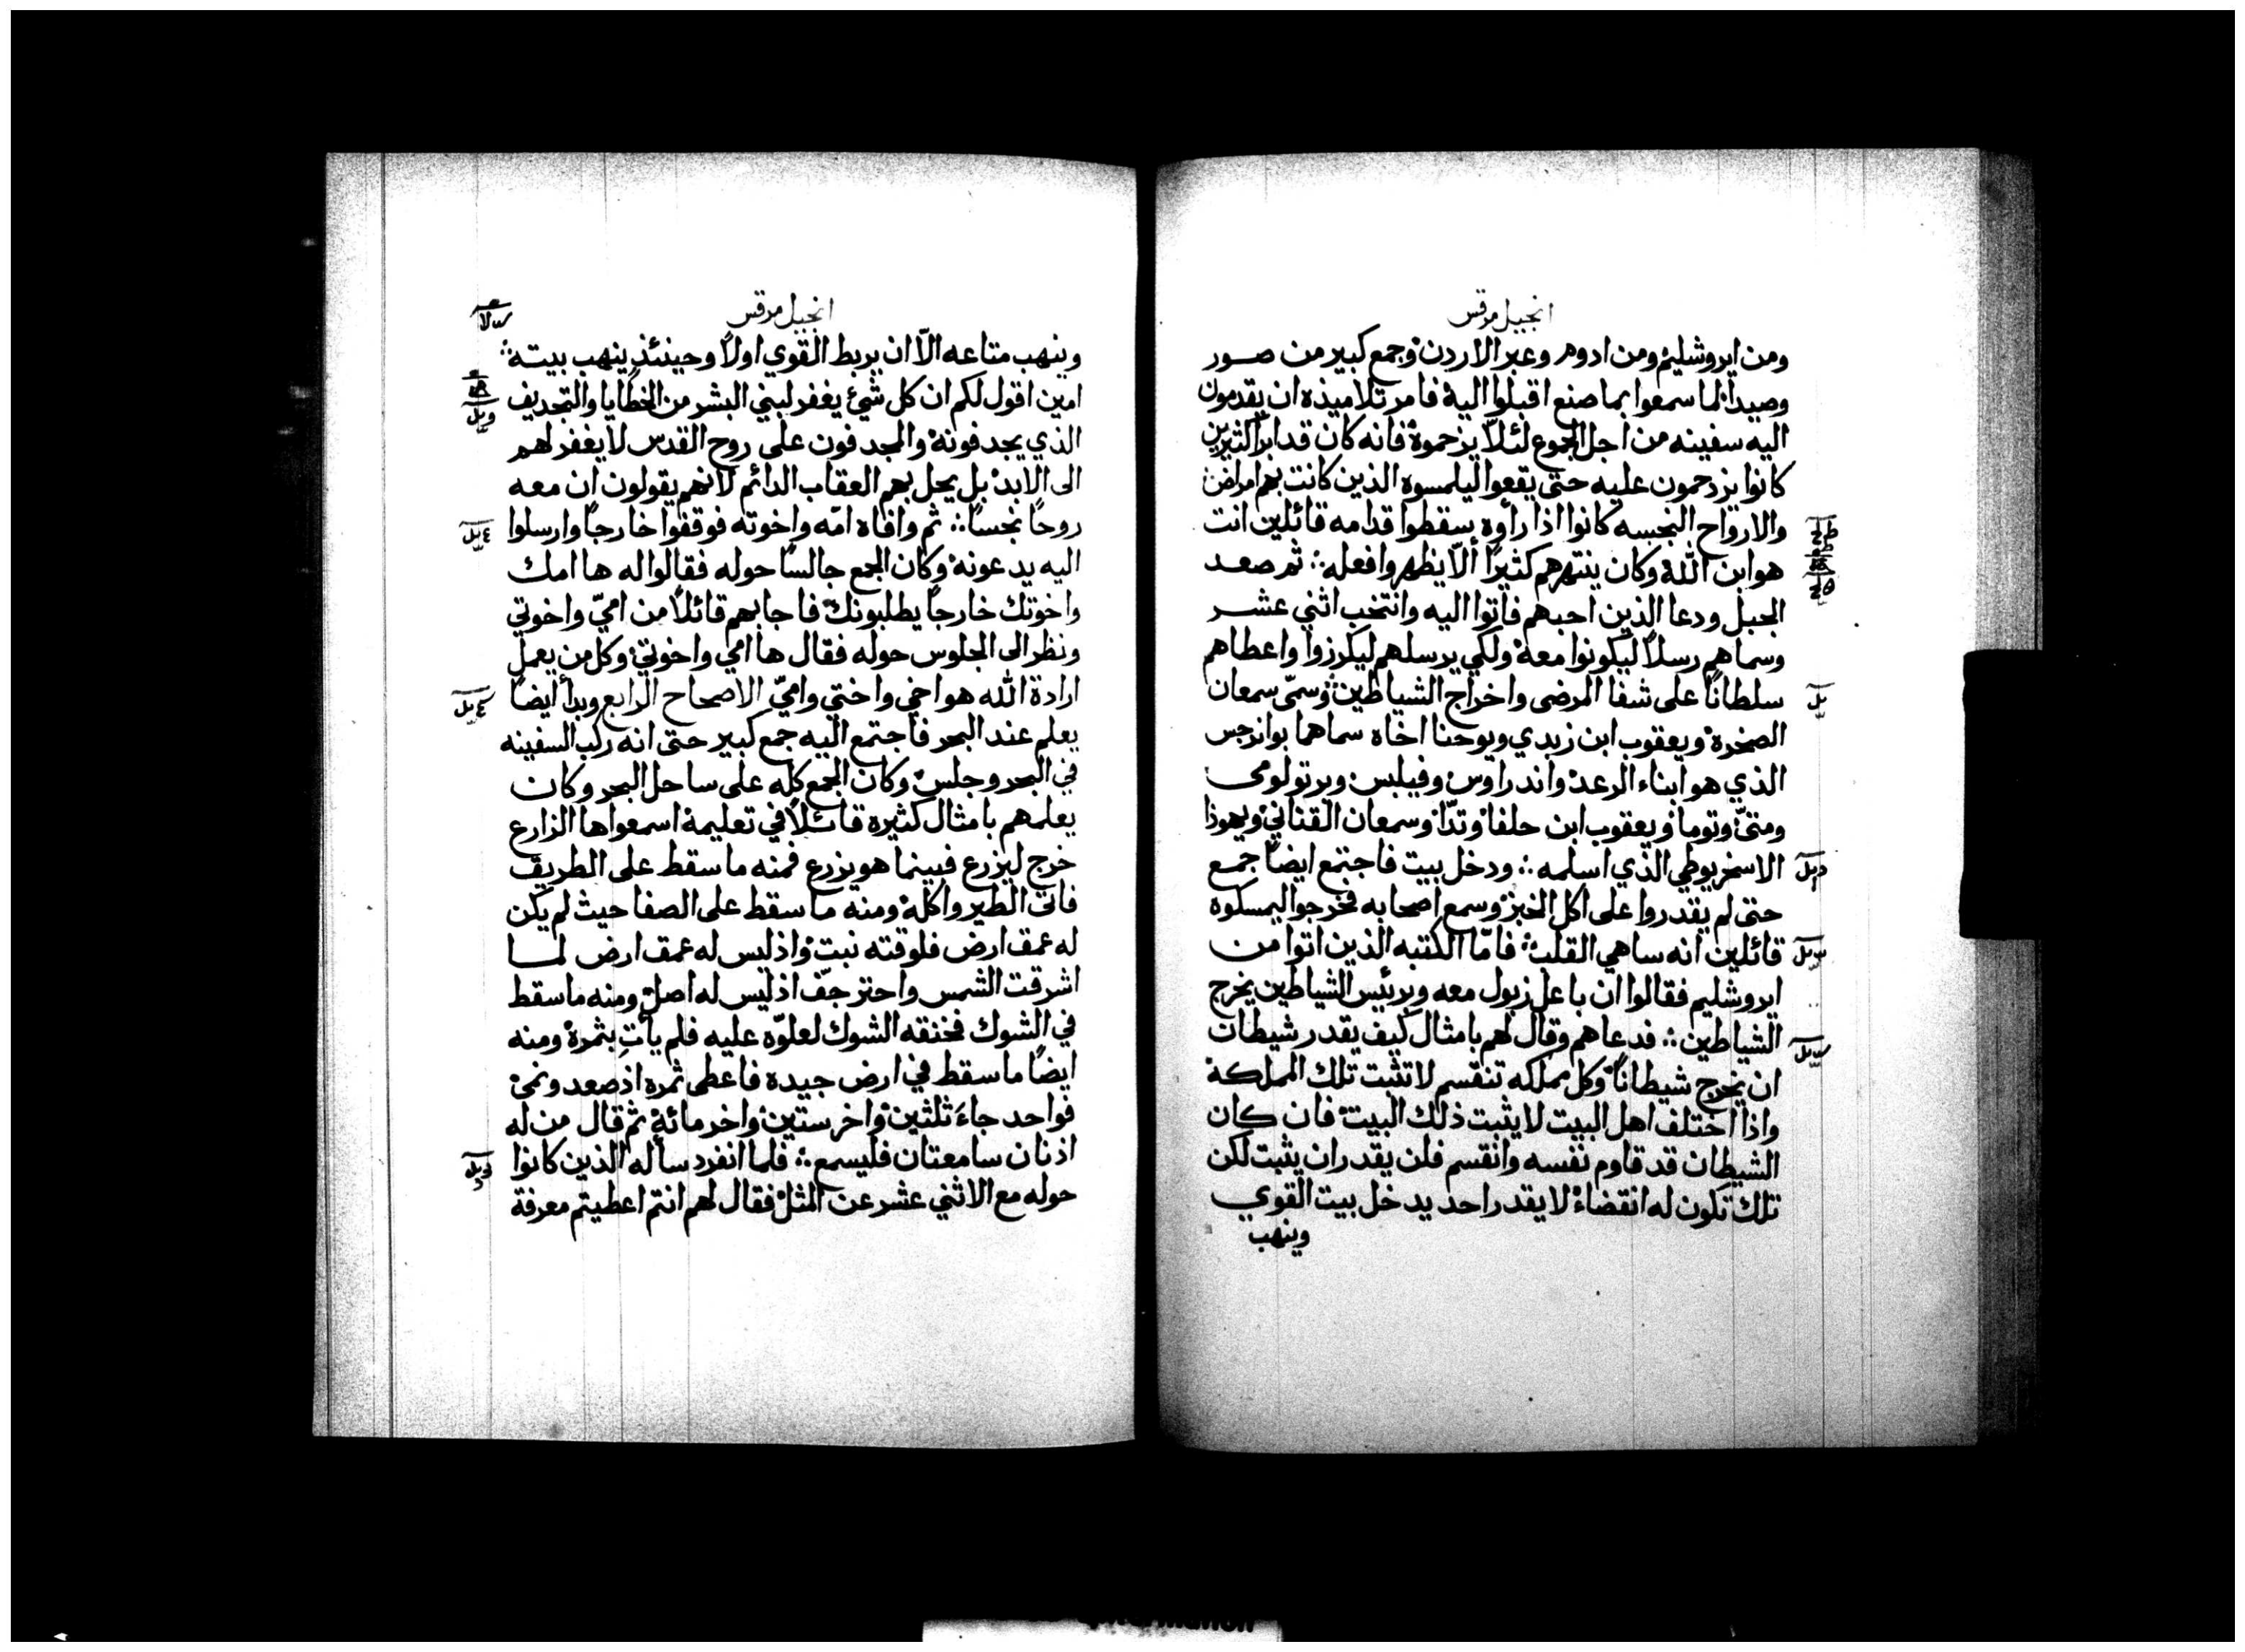 انجيل مرقس
ومن ايروشليم ومن ادوم وعبر الاردن وجمع كبير من صور
وصيدا لما سمعوا بما صنع اقبلوا اليه فامر تلاميذه ان يقدمون
اليه سفينه من اجل الجموع لئلّا يزحموه فانه كان قد ابرا كثيرين
كانوا يزدحمون عليه حتى يقعوا ليلمسوه الذين كانت بهم امراض
والارواح النجسه كانوا اذا رأوه سقطوا قدامه قائلين انت
هو ابن الله وكان ينتهرهم كثيرًا ألّا يظهروا فعله ∴ ثم صعد
الجبل ودعا الذين احبهم فاتوا اليه وانتخب اثني عشر
وسماهم رسلًا ليكونوا معه ولكي يرسلهم ليكرزوا واعطاهم
سلطانًا على شفا المرضى واخراج الشياطين وسمّى سمعان
الصخرة ويعقوب ابن زبدي ويوحنا اخاه سماهما بوانرجس
الذي هو ابناء الرعد واندراوس وفيلبس وبرتولومى
ومتىّ وتوما ويعقوب ابن حلفا وتدّا وسمعان القناني ويهوذا
الاسخريوطي الذي اسلمه ∴ ودخل بيت فاجتمع ايضًا جمع
حتى لم يقدروا على اكل الخبز وسمع اصحابه فخرجوا ليمسكوه
قائلين انه ساهي القلب ∴ فامّا الكتبه الذين اتوا من
ايروشليم فقالوا ان باعل زبول معه وبرئيس الشياطين يخرج
الشياطين ∴ فدعاهم وقال لهم بامثال كيف يقدر شيطان
ان يخرج شيطانًا وكل مملكه تنقسم لا تثبت تلك المملكة
واذا اختلف اهل البيت لا يثبت ذلك البيت فان كان
الشيطان قد قاوم نفسه وانقسم فلن يقدر ان يثبت لكن
تلك تكون له انقضاء لا يقدر احد يدخل بيت القوي
وينهب
انجيل مرقس
وينهب متاعه الّا ان يربط القوي اولًا وحينئذٍ ينهب بيته ∴
امين اقول لكم ان كل شئ يغفر لبني البشر من الخطايا والتجديف
الذي يجدفونه والمجدفون على روح القدس لا يغفر لهم
الى الابد بل يحل بهم العقاب الدائم لانهم يقولون ان معه
روحًا نجسًا ∴ ثم وافاه امّه واخوته فوقفوا خارجًا وارسلوا
اليه يدعونه وكان الجمع جالسًا حوله فقالوا له ها امك
واخوتك خارجًا يطلبونك فاجابهم قائلًا من اميّ واخوتي
ونظر الى الجلوس حوله فقال ها امي واخوتي وكل من يعمل
ارادة الله هو اخي واختي واميّ الاصحاح الرابع وبدأ ايضًا
يعلم عند البحر فاجتمع اليه جمع كبير حتى انه ركب السفينه
في البحر وجلس وكان الجمع كله على ساحل البحر وكان
يعلمهم بامثال كثيرة قائلًا في تعليمه اسمعوا ها الزارع
خرج ليزرع فبينما هو يزرع فمنه ما سقط على الطريق
فاتى الطير واكله ومنه ما سقط على الصفا حيث لم يكن
له عمق ارض فلوقته نبت واذ ليس له عمق ارض لما
اشرقت الشمس واحتر جفّ اذ ليس له اصل ومنه ما سقط
في الشوك فخنقه الشوك لعلوّه عليه فلم يأتِ بثمرة ومنه
ايضًا ما سقط في ارض جيدة فاعطى ثمره اذ صعد ونمى
فواحد جاءَ ثلثين واخر ستين واخر مائة ثم قال من له
اذنان سامعتان فليسمع ∴ فلما انفرد سأله الذين كانوا
حوله مع الاثني عشر عن المثل فقال لهم انتم اعطيتم معرفة